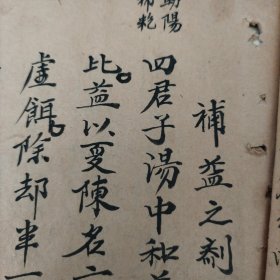 補益之剤
四君子湯中和
比益以夏陳名
虛餌除却半